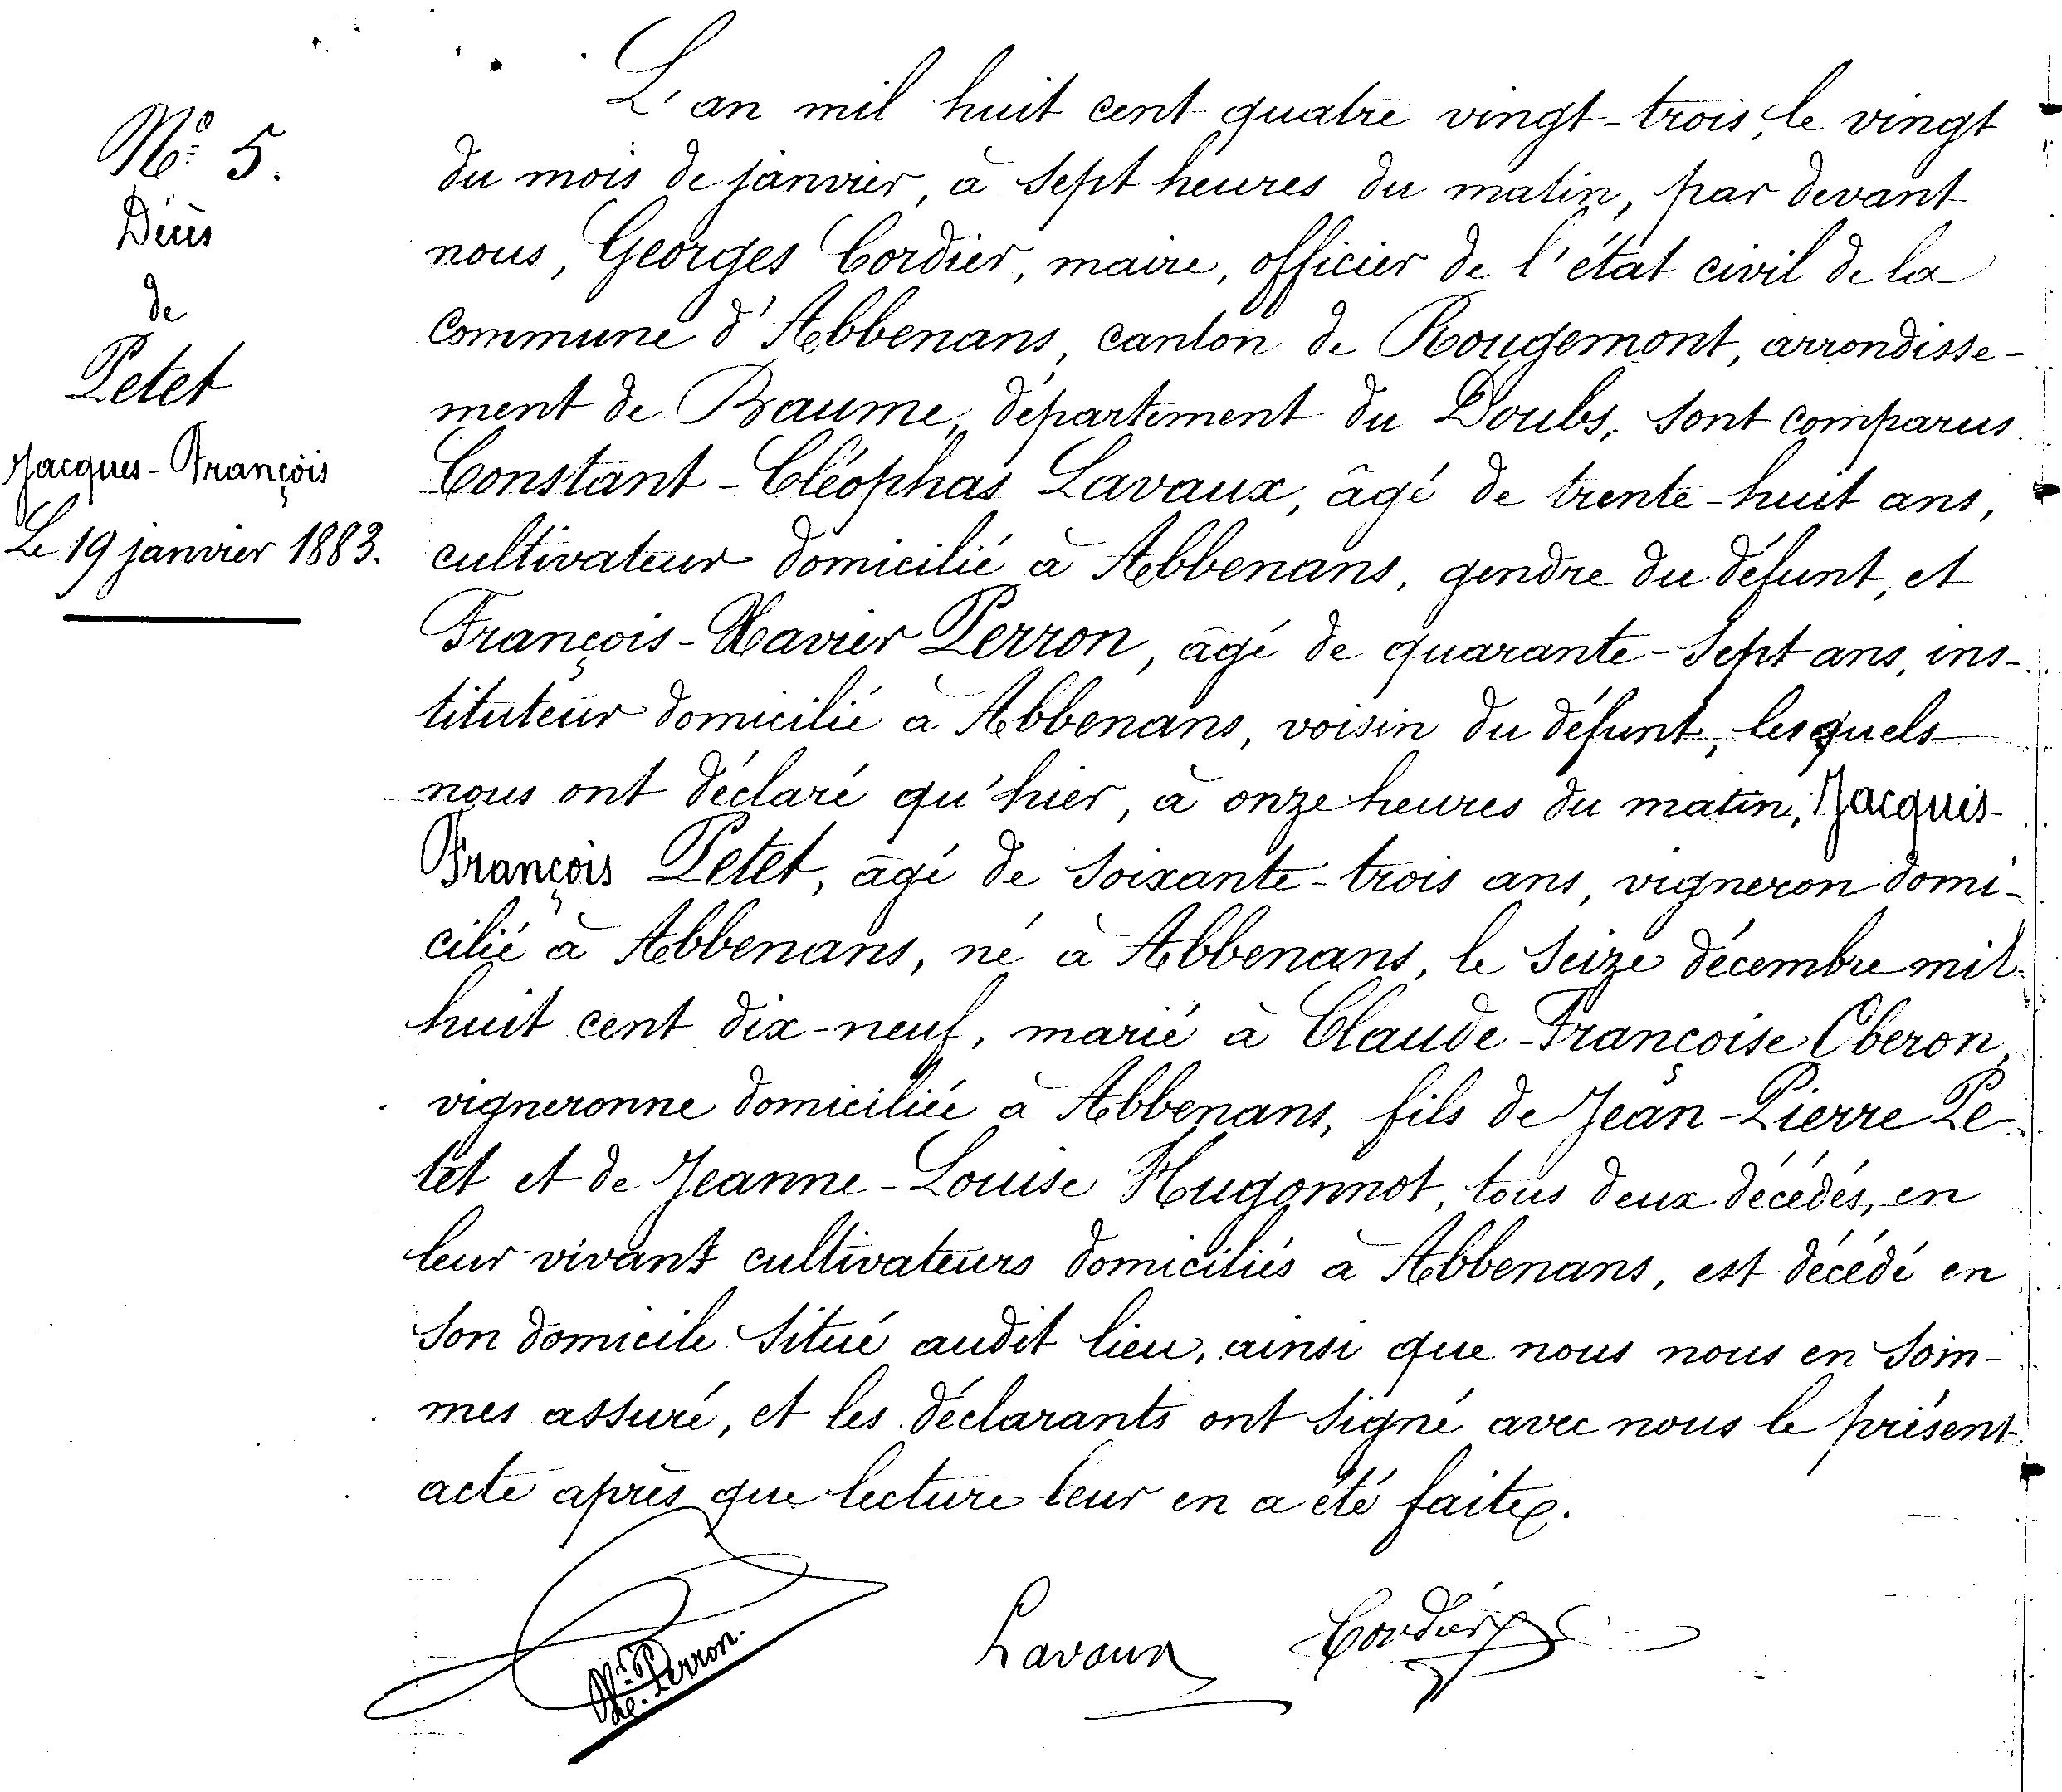 N° 5.
Décès
de
Petet
Jacques-François
Le 19 janvier 1883.
L'an mil huit cent quatre vingt-trois, le vingt
du mois de janvier, à sept heures du matin, par devant
nous, Georges Cordier, maire, officier de l'état civil de la
commune d'Abbenans, canton de Rougemont, arrondisse-
ment de Baume, département du Doubs, sont comparus
Constant-Cléophas Lavaux, âgé de trente-huit ans,
cultivateur domicilié à Abbenans, gendre du défunt, et
François-Xavier Perron, âgé de quarante-sept ans, ins-
tituteur domicilié à Abbenans, voisin du défunt, lesquels
nous ont déclaré qu'hier, à onze heures du matin, Jacques-
François Petet, âgé de soixante-trois ans, vigneron domi-
cilié à Abbenans, né à Abbenans, le seize décembre mil
huit cent dix-neuf, marié à Claude-Françoise Oberon,
vigneronne domiciliée à Abbenans, fils de Jean-Pierre Pe-
tet et de Jeanne-Louise Hugonnot, tous deux décédés, en
leur vivant cultivateurs domiciliés à Abbenans, est décédé en
son domicile situé audit lieu, ainsi que nous nous en som-
mes assuré, et les déclarants ont signé avec nous le présent
acte après que lecture leur en a été faite.
Perron.
Lavaux
Cordier